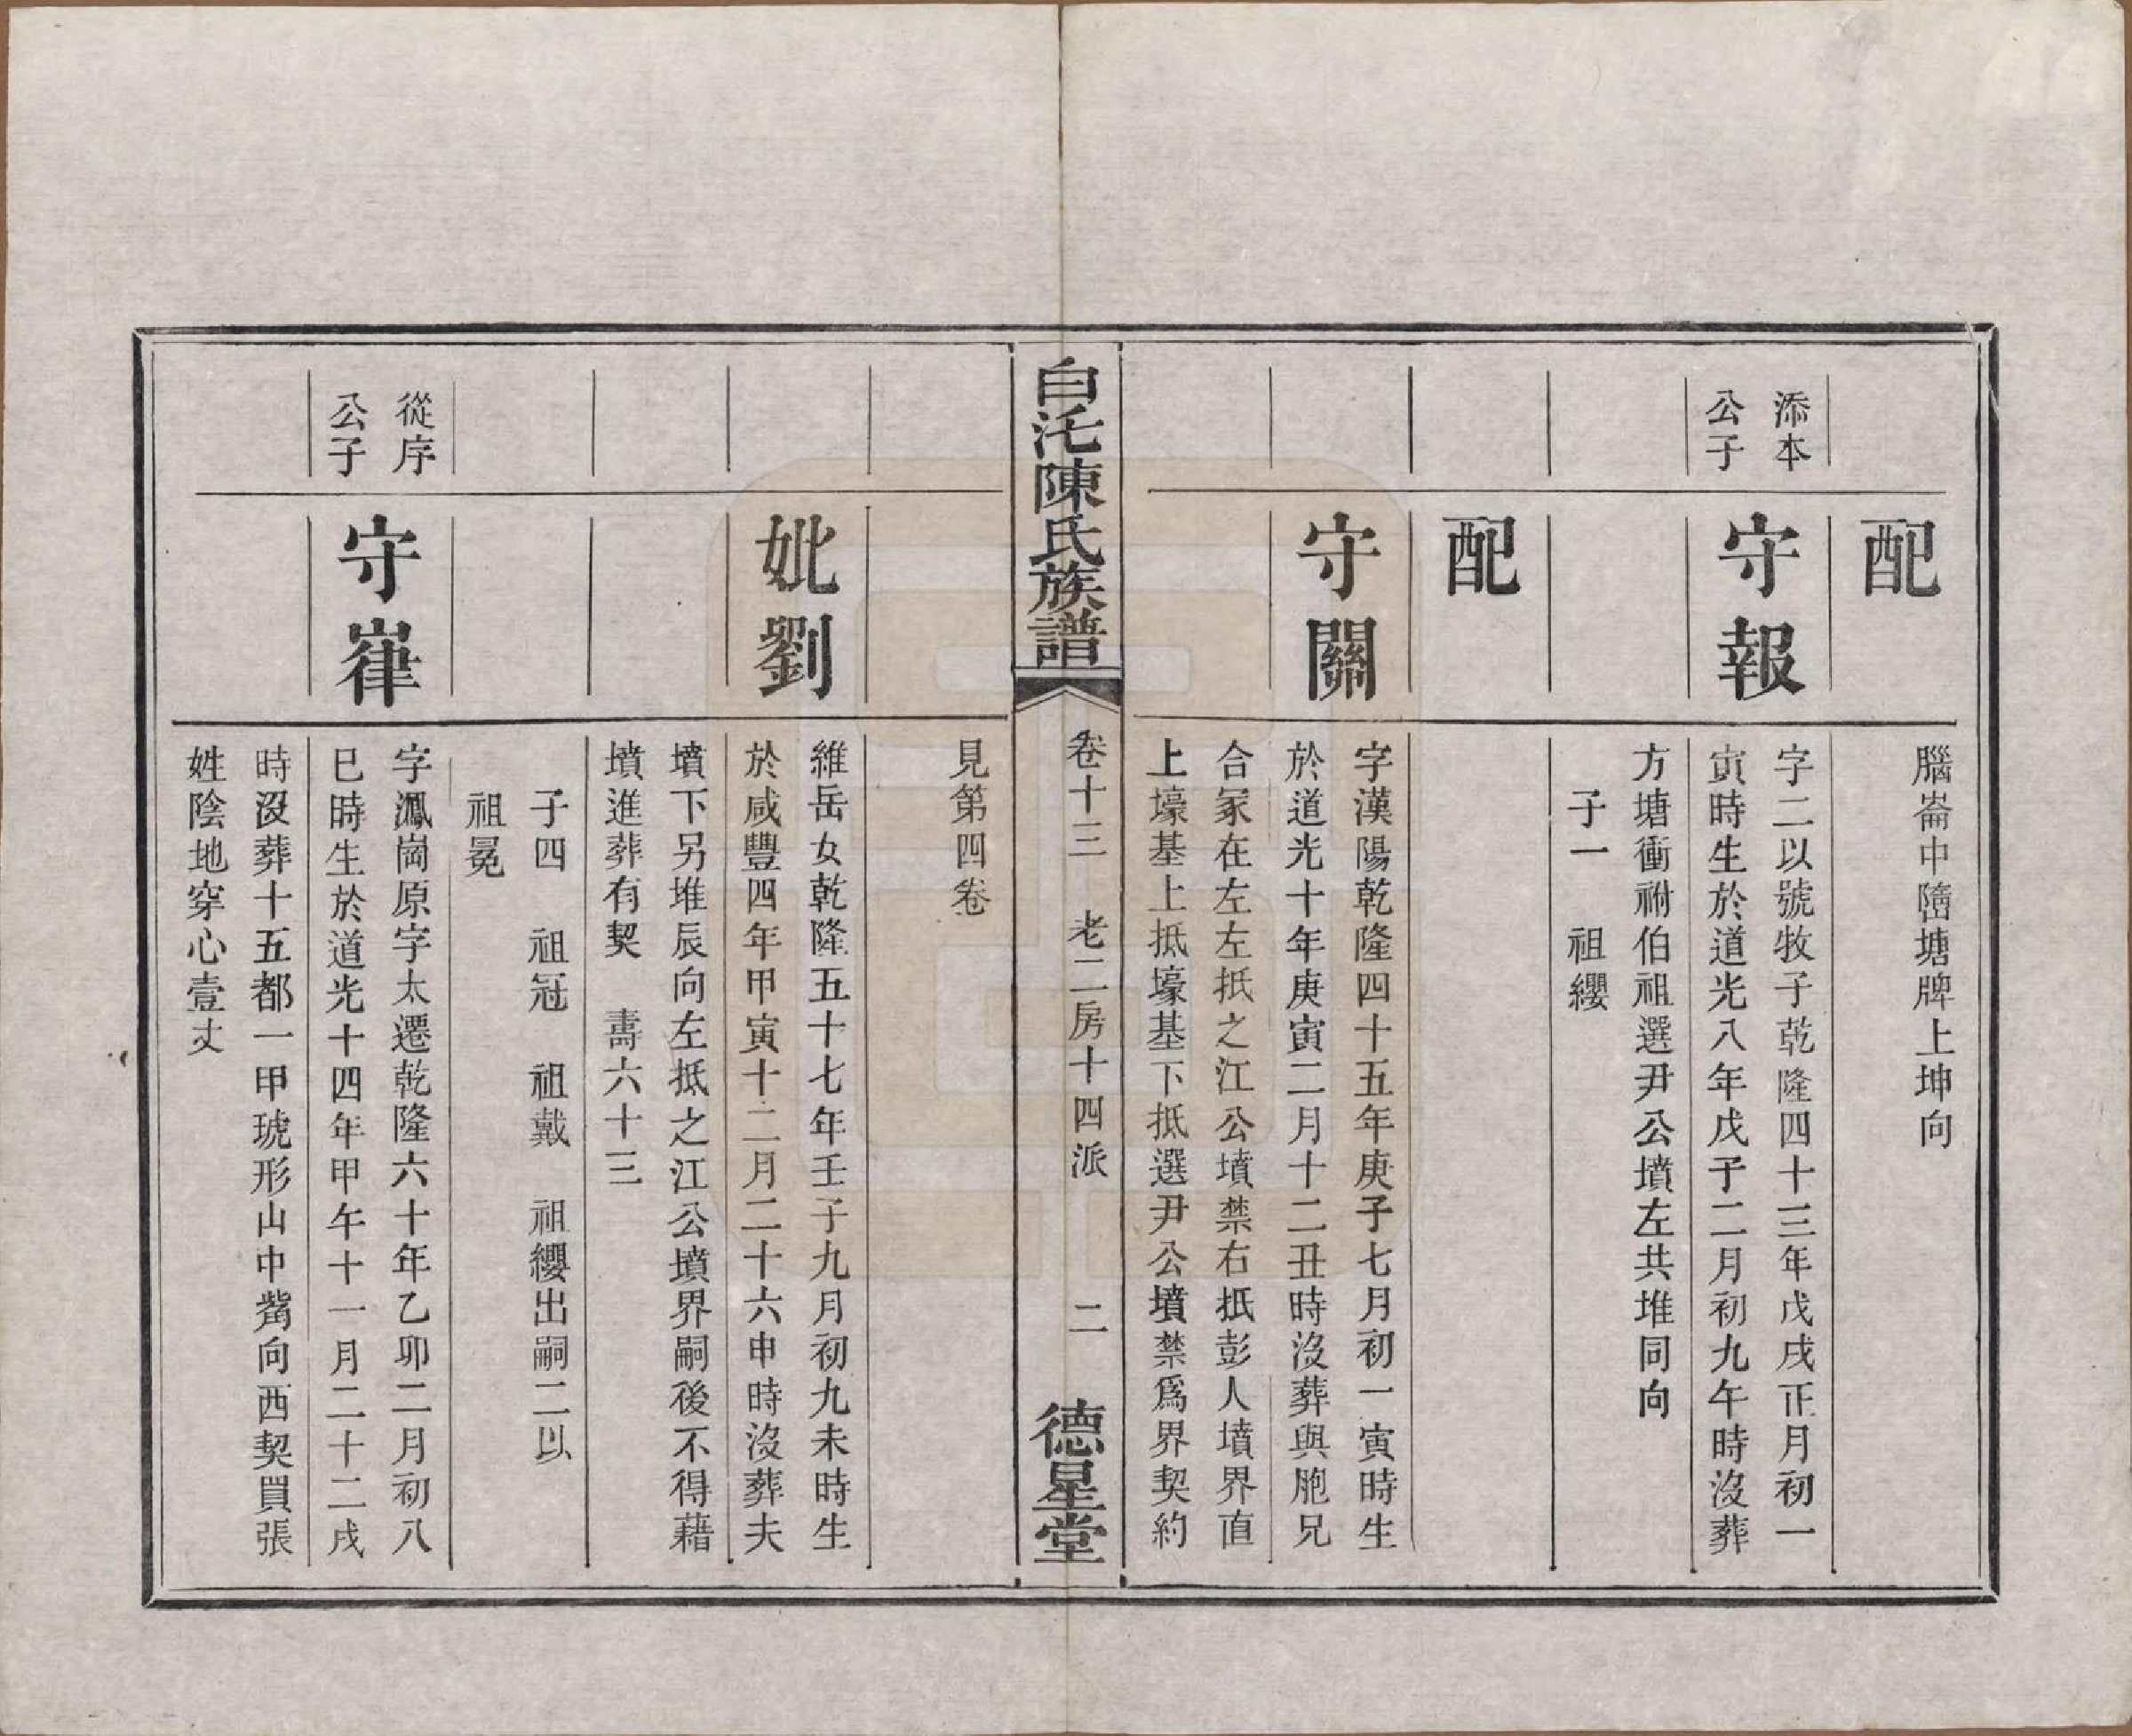 配
腦崙中𡐦塘牌上坤向
添本
公子
守報
字二以號牧子乾隆四十三年戊戌正月初一
寅時生於道光八年戊子二月初九午時沒葬
方塘衝祔伯祖選尹公墳左共堆同向
子一　祖纓
配
守關
字漢陽乾隆四十五年庚子七月初一寅時生
於道光十年庚寅二月十二丑時沒葬與胞兄
合冢在左左抵之江公墳禁右抵彭人墳界直
上壕基上抵壕基下抵選尹公墳禁爲界契約
白沱陳氏族譜
卷十三　老二房十四派　二
德星堂
見第四卷
妣劉
維岳女乾隆五十七年壬子九月初九未時生
於咸豐四年甲寅十二月二十六申時沒葬夫
墳下另堆辰向左抵之江公墳界嗣後不得藉
墳進葬有契　壽六十三
子四　祖冠　祖戴　祖纓出嗣二以
祖冕
從序
公子
守嵂
字鳳崗原字太遷乾隆六十年乙卯二月初八
巳時生於道光十四年甲午十一月二十二戌
時沒葬十五都一甲琥形山中觜向西契買張
姓陰地穿心壹丈